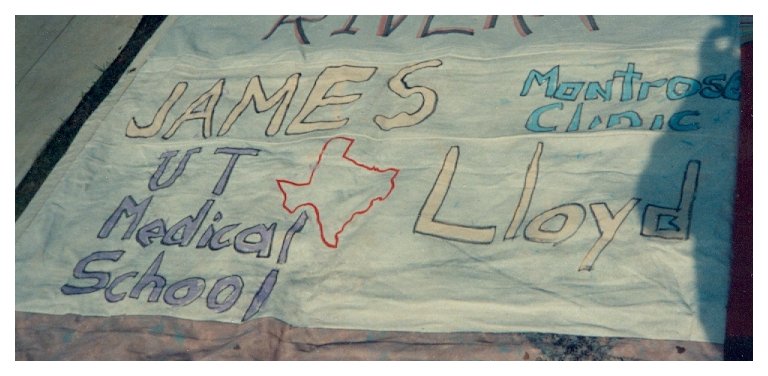 JAMES
Montrose
Clinic
UT
Medical
School
Lloyd